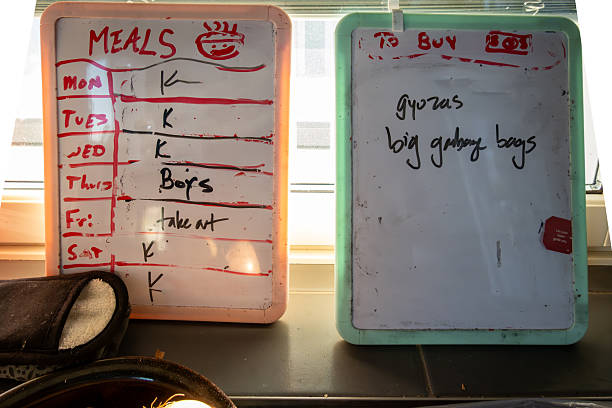 MEALS
MON K
TUES K
WED K
Thurs Boys
Fri: take out
Sat K
K
To Buy
gyozas
big garbage bags